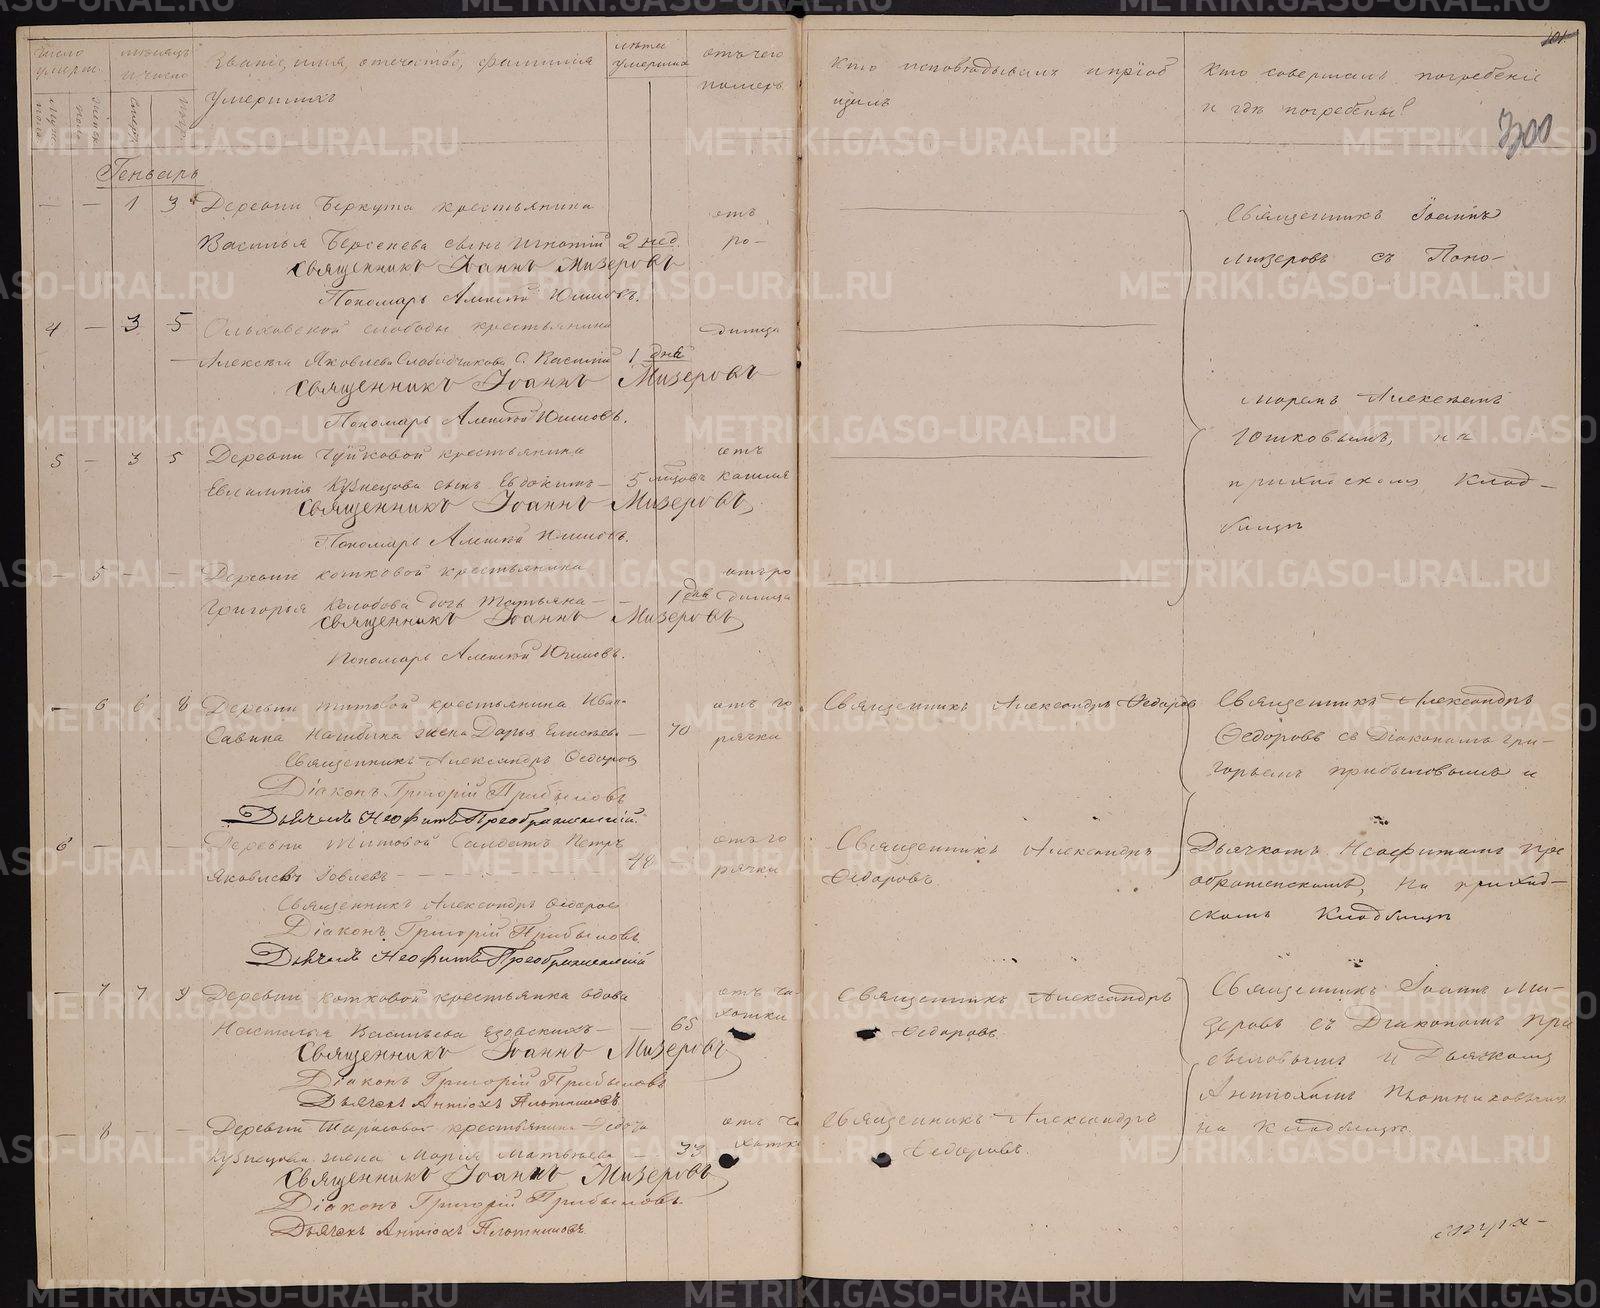 Число умерш.
Муж. пола
Женск. пола
мѣсяцъ и число
Званіе, имя, отечество, фамилія
умершихъ
лѣта умершихъ
отъ чего
померъ
Кто исповѣдывалъ и пріоб
щалъ
Кто совершалъ погребеніе
и гдѣ погребены?
101
300
Генварь
— — 1 3 Деревни Беркута крестьянина
Василья Берсенева сынъ Игнатій 2 нед. отъ ро-
Священникъ Іоаннъ Мизеровъ
Пономарь Алексѣй Юшковъ.
4 — 3 5 Ольховской слободы крестьянина димца
Алексѣя Яковлева Слободчикова с. Василій 1 дня
Священникъ Іоаннъ Мизеровъ
Пономарь Алексѣй Юшковъ.
5 — 3 5 Деревни крестьянина отъ
Евлампія Кузнецова сынъ Евдокимъ — 5 кашля
Священникъ Іоаннъ Мизеровъ
Пономарь Алексѣй Юшковъ.
— 5 — — Деревни Котковой крестьянина отъ ро
Григорья Колобова дочь Татьяна — 1 дня димца
Священникъ Іоаннъ Мизеровъ
Пономарь Алексѣй Юшковъ.
— 6 6 8 Деревни Титовой крестьянина Иван отъ го
жена Дарья Елисѣева — 70 рячки
Священникъ Александръ Ѳедоровъ
Діаконъ Григорій Прибыловъ
Дьячекъ Неофитъ Преображенскій.
6 — — — Деревни Титовой Солдатъ Петръ отъ го
Яковлевъ 48 рячки
Священникъ Александръ Ѳедоровъ
Діаконъ Григорій Прибыловъ
Дьячекъ Неофитъ Преображенскій
— 7 7 9 Деревни Котковой крестьянка вдова отъ ча-
Наталья Васильева — 65 хотки
Священникъ Іоаннъ Мизеровъ
Діаконъ Григорій Прибыловъ
Дьячекъ Антіохъ Плотниковъ
— 8 — — Деревни крестьянина отъ ча
Кузнецова жена Марія Матвѣева — 33 хотки
Священникъ Іоаннъ Мизеровъ
Діаконъ Григорій Прибыловъ.
Дьячекъ Антіохъ Плотниковъ.
Священникъ Александръ Ѳедоровъ
Священникъ Александръ
Ѳедоровъ
Священникъ Александръ
Ѳедоровъ.
Священникъ Александръ
Ѳедоровъ.
Священникъ Іоаннъ
Мизеровъ съ Поно-
маремъ Алексѣемъ
Юшковымъ, на
приходскомъ клад-
бищѣ
Священникъ Александръ
Ѳедоровъ съ Діакономъ Гри-
горьемъ Прибыловымъ и
Дьячкомъ Неофитомъ Пре
ображенскимъ, на приход-
скомъ кладбищѣ
Священникъ Іоаннъ Ми-
зеровъ съ Діакономъ При
быловымъ и Дьячкомъ
Антіохомъ Плотниковымъ
на кладбищѣ.
METRIKI.GASO-URAL.RU